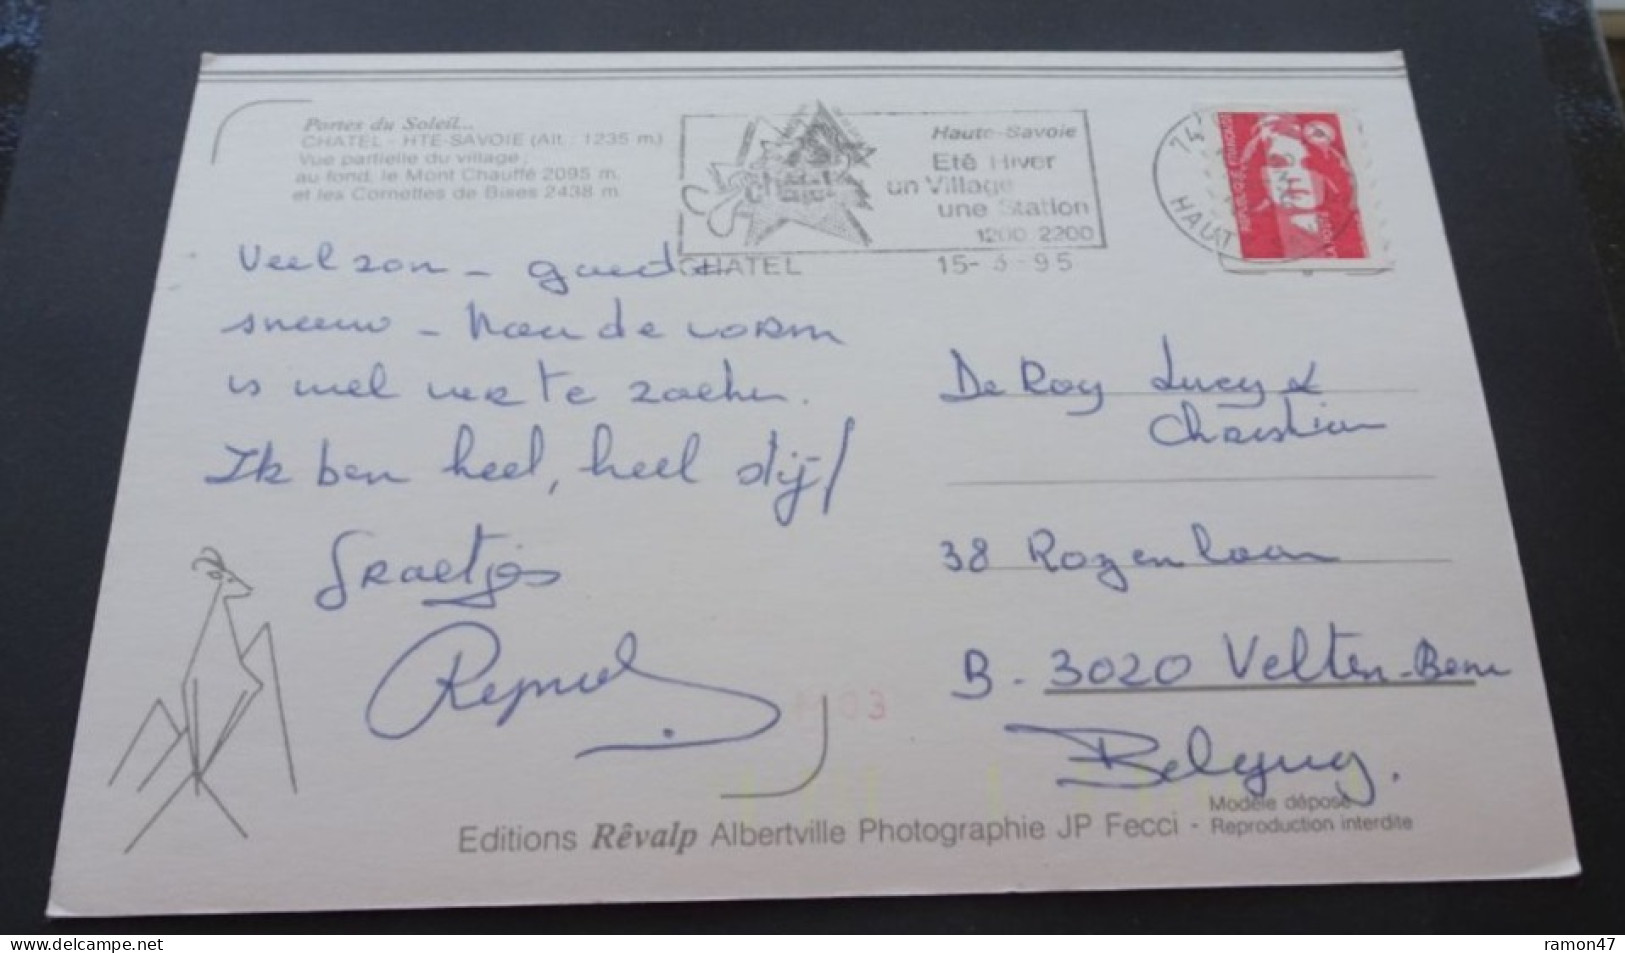 Portes du Soleil...
CHATEL - HTE-SAVOIE (Alt. : 1235 m)
Vue partielle du village ;
au fond, le Mont Chauffé 2095 m.
et les Cornettes de Bises 2438 m.
Châtel
Haute-Savoie
Eté Hiver
un Village
une Station
1200 2200
CHATEL 15- 3 -95
74
HAUT
REPUBLIQUE FRANÇAISE
LA POSTE
Veel zon - goede
sneeuw - Maar de vorm
is wel ver te zoeken.
Ik ben heel, heel stijf
Groetjes
De Roy Lucy &
Christian
38 Rozenlaan
B - 3020 Velten-Bem
Belguq.
Editions Rêvalp Albertville Photographie JP Fecci - Modèle déposé
Reproduction interdite
www.delcampe.net
ramon47